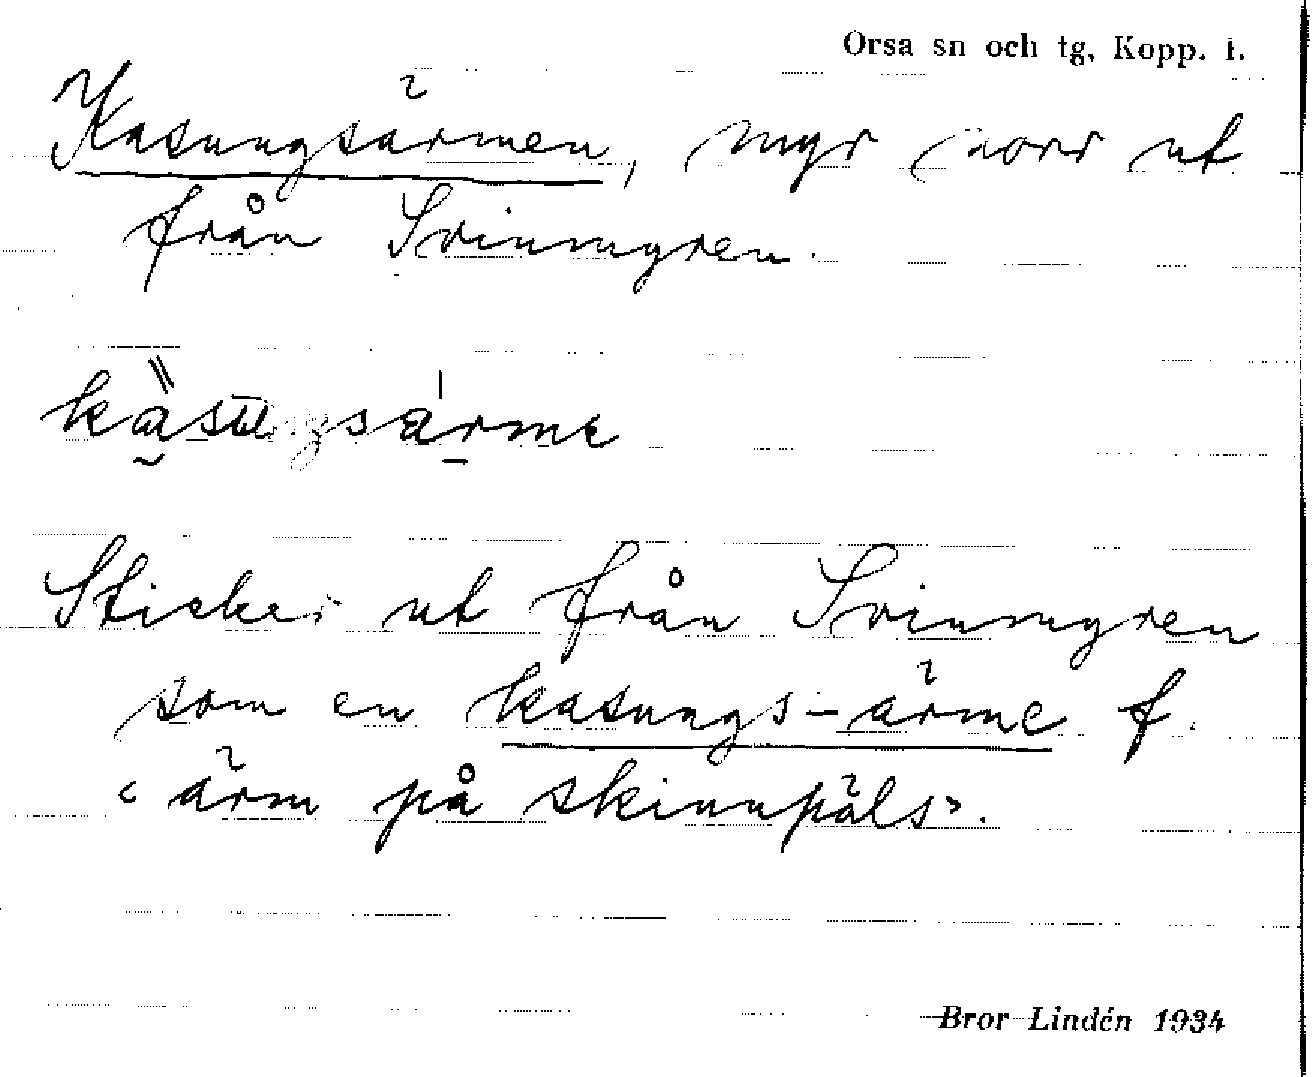 Orsa sn och tg, Kopp. l.
Kasungsärmen, myr norr ut
från Svinmyren.
kasu särme
Sticker ut från Svinmyren
som en kasungs-ärme f.
‹ärm på skinnpäls›.
Bror Lindén 1934